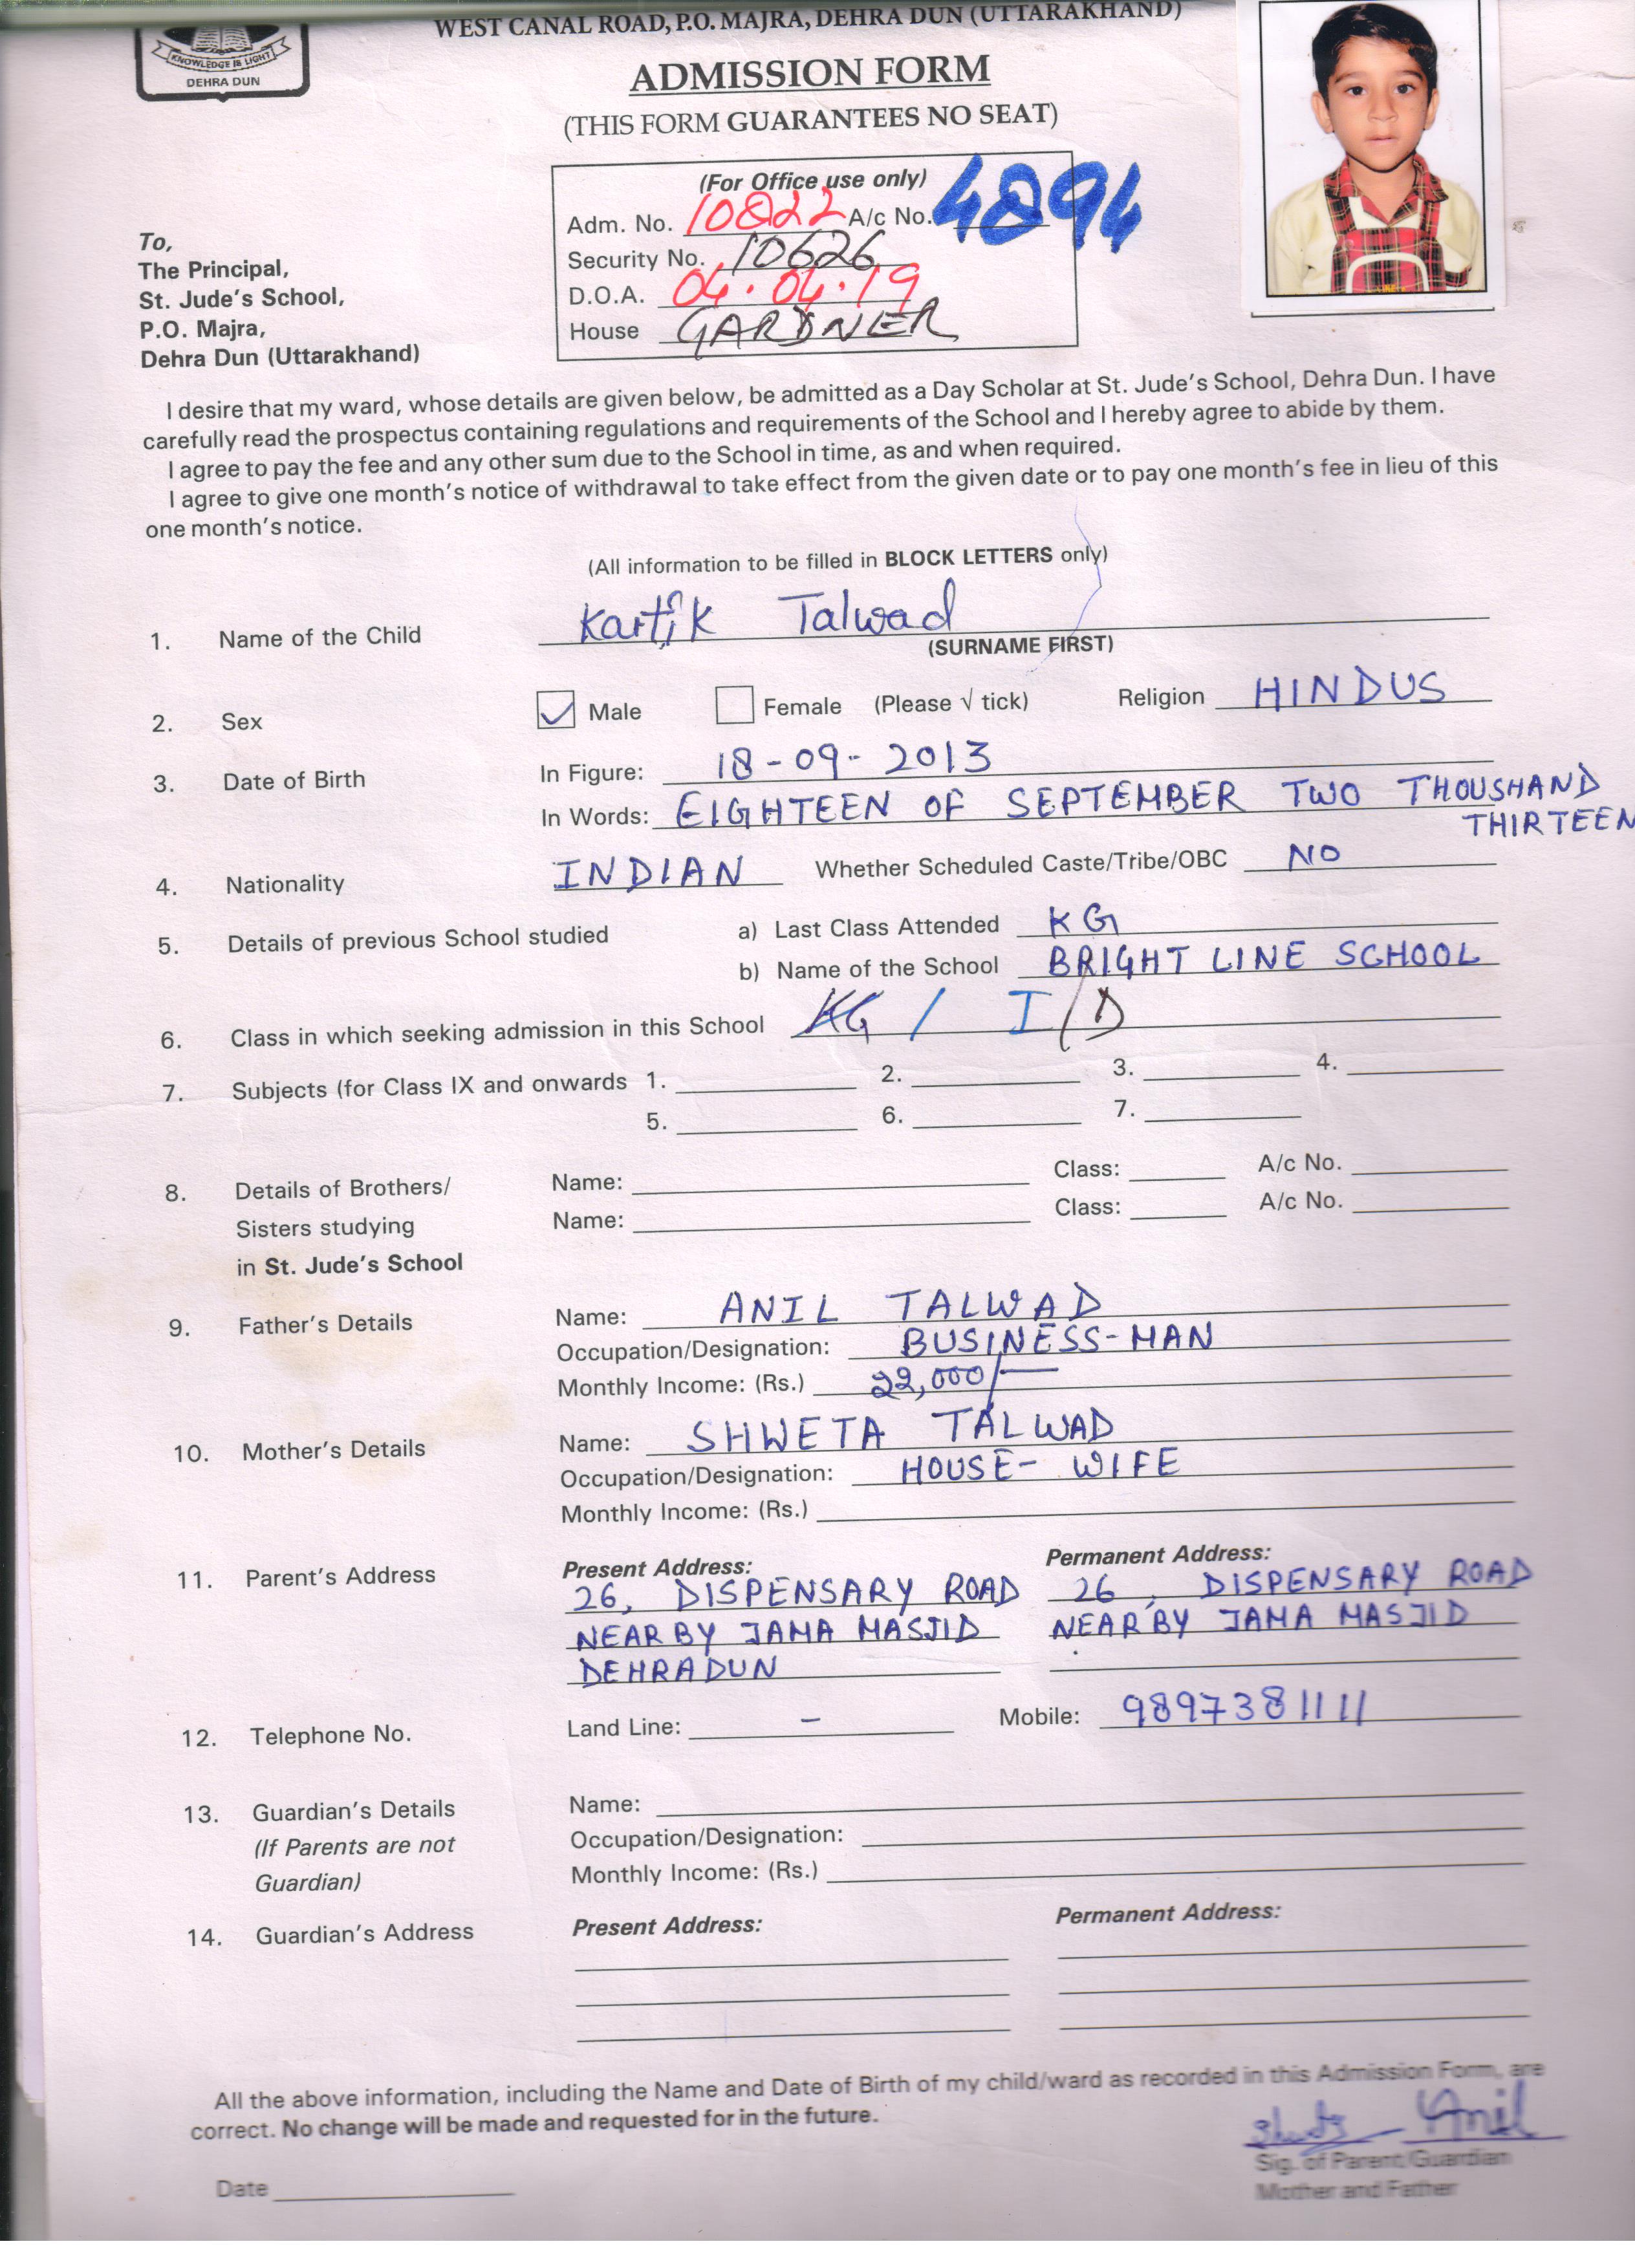 WEST CANAL ROAD, P.O. MAJRA, DEHRA DUN (UTTARAKHAND)
KNOWLEDGE IS LIGHT
DEHRA DUN
ADMISSION FORM
(THIS FORM GUARANTEES NO SEAT)
(For Office use only)
Adm. No. 10822 A/c No. 4894
Security No. 10626
D.O.A. 04.04.19
House GARDNER
To,
The Principal,
St. Jude's School,
P.O. Majra,
Dehra Dun (Uttarakhand)
I desire that my ward, whose details are given below, be admitted as a Day Scholar at St. Jude's School, Dehra Dun. I have
carefully read the prospectus containing regulations and requirements of the School and I hereby agree to abide by them.
I agree to pay the fee and any other sum due to the School in time, as and when required.
I agree to give one month's notice of withdrawal to take effect from the given date or to pay one month's fee in lieu of this
one month's notice.
(All information to be filled in BLOCK LETTERS only)
1. Name of the Child Kartik Talwad
(SURNAME FIRST)
2. Sex Male Female (Please √ tick) Religion HINDUS
3. Date of Birth In Figure: 18-09-2013
In Words: EIGHTEEN OF SEPTEMBER TWO THOUSHAND
THIRTEEN
4. Nationality INDIAN Whether Scheduled Caste/Tribe/OBC NO
5. Details of previous School studied a) Last Class Attended KG
b) Name of the School BRIGHT LINE SCHOOL
6. Class in which seeking admission in this School KG / I/D
7. Subjects (for Class IX and onwards 1. 2. 3. 4.
5. 6. 7.
8. Details of Brothers/ Name: Class: A/c No.
Sisters studying Name: Class: A/c No.
in St. Jude's School
9. Father's Details Name: ANIL TALWAD
Occupation/Designation: BUSINESS-MAN
Monthly Income: (Rs.) 22,000/-
10. Mother's Details Name: SHWETA TALWAD
Occupation/Designation: HOUSE-WIFE
Monthly Income: (Rs.)
11. Parent's Address Present Address: Permanent Address:
26, DISPENSARY ROAD 26, DISPENSARY ROAD
NEAR BY JAMA MASJID NEAR BY JAMA MASJID
DEHRADUN
12. Telephone No. Land Line: - Mobile: 9897381111
13. Guardian's Details Name:
(If Parents are not Occupation/Designation:
Guardian) Monthly Income: (Rs.)
14. Guardian's Address Present Address: Permanent Address:
All the above information, including the Name and Date of Birth of my child/ward as recorded in this Admission Form, are
correct. No change will be made and requested for in the future.
Anil
Sig. of Parent/Guardian
Date Mother and Father